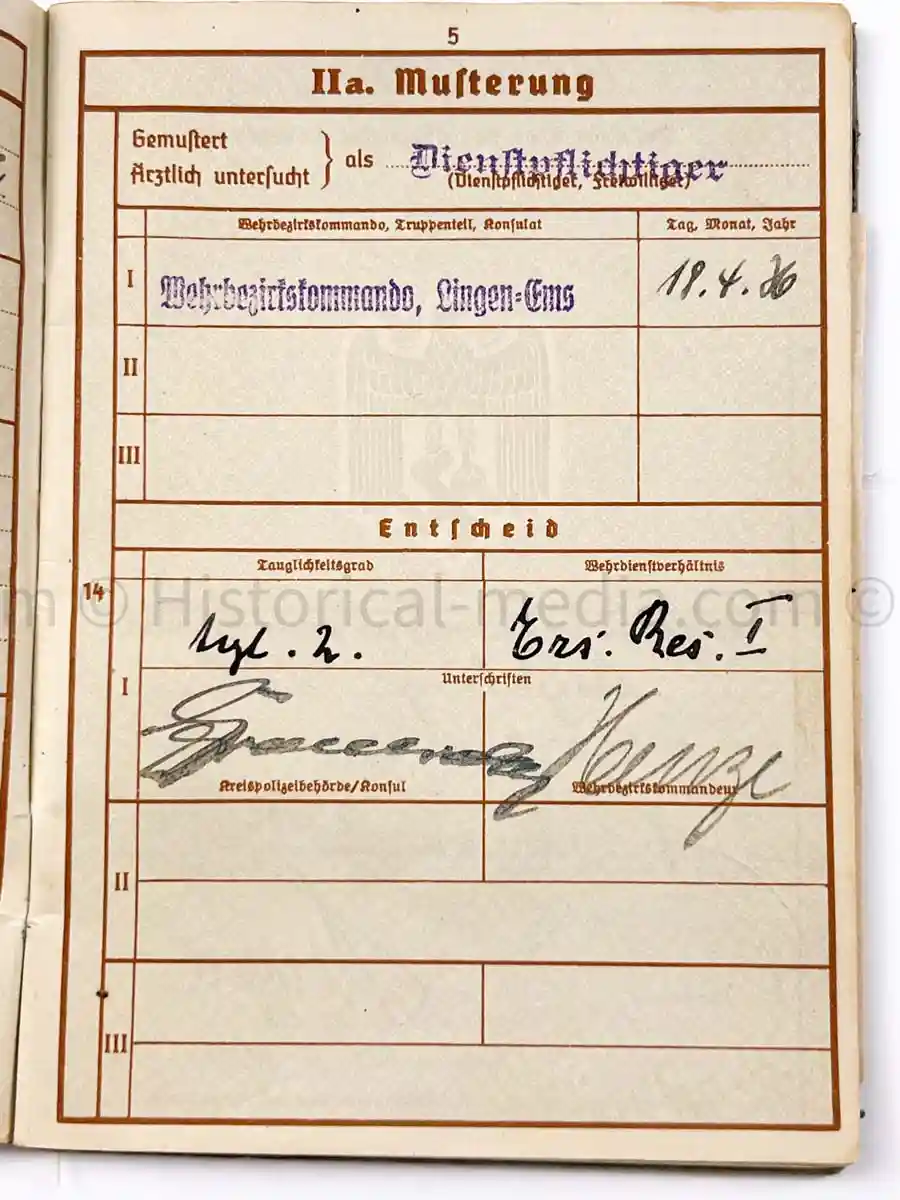 5
IIa. Musterung
Gemustert
Ärztlich untersucht } als Dienstpflichtiger
(Dienstpflichtiger, Freiwilliger)
Wehrbezirkskommando, Truppenteil, Konsulat Tag, Monat, Jahr
I Wehrbezirkskommando, Lingen-Ems 18.4.36
II
III
Entscheid
Tauglichkeitsgrad Wehrdienstverhältnis
14
m © Historical-media.com ©
tgl. 2. Ers. Res. I
I
Unterschriften
Henze
Kreispolizeibehörde/Konsul Wehrbezirkskommandeur
II
III